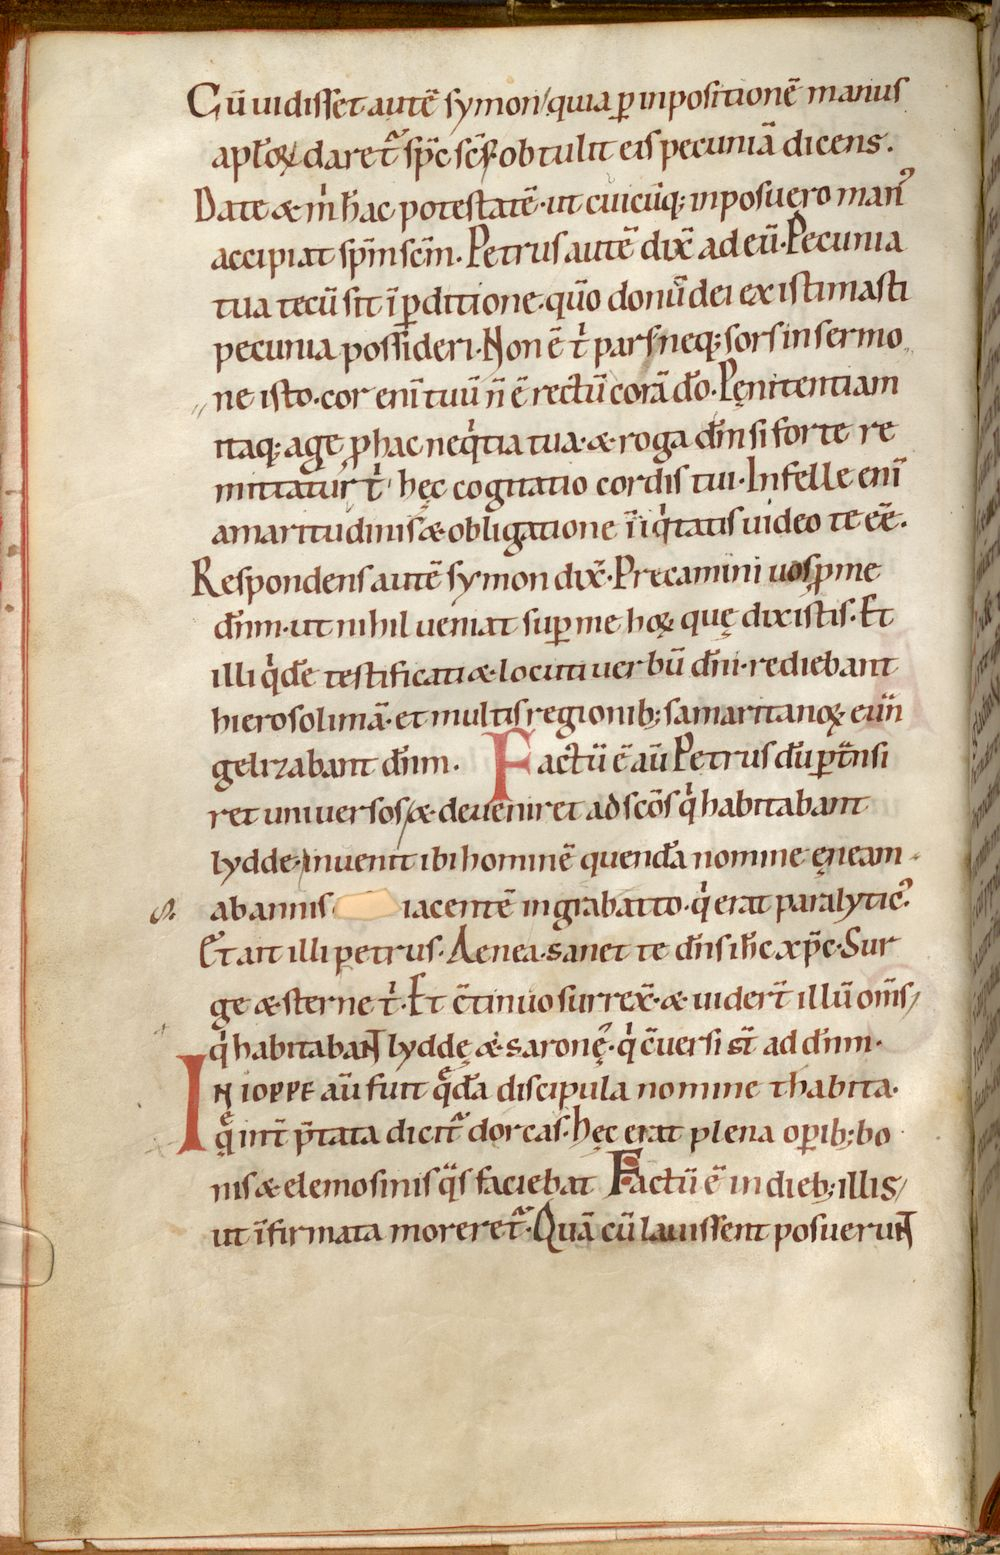 Cū uidisset autē symon quia ꝑ inpositionē manus
apło℞ daret᷑ spc̄ scs̄ obtulit eis pecuniā dicens.
Date & m̍ hac potestatē · ut cuicūq; inposuero man᾽
accipiat spm̄ scm̄. Petrus autē dix̄ ad eū · Pecunia
tua tecū sit ī ꝑditione · qūo donū dei existimasti
pecunia possideri. Non ē t̍ pars neq; sors in sermo
ne isto · cor enī tuū n̄ ē rectū corā dō. Pęnitentiam
itaq; age ꝓ hac neq̍tia tua · & roga dm̄ si forte re
mittatur t̍ hęc cogitatio cordis tui. In felle enī
amaritudinis & obligatione īiq̍tatis uideo te eē.
Respondens autē symon dix̄ · Precamini uos ꝓ me
dn̄m · ut nihil ueniat suꝑ me ho℞ quę dixistis. Et
illi q̍dē testificati & locuti uerbū dn̄i · rediebant
hierosolimā · et multis regionib; samaritano℞ euū
gelizabant dn̄m. Factū ē aū Petrus dū ꝑtn̄si
ret uniuersos & deueniret ad scōs q̍ habitabant
lydde · inuenit ibi hominē quendā nomine ęneam
ab annis · iacentē in grabatto · q̍ erat paralytic᾽
Et ait illi petrus. Aenea · sanet te dn̄s ih̄c xp̄c · Sur
ge & sterne t̍. Et c̄tinuo surrex̄ · & uidert̄ illū om̄s
q̍ habitabant lyddę & saronę᾽ · q̍ c̄uersi st̄ ad dn̄m.
IN IOPPE aū fuit qdā discipula nomine thabita.
q int̄ p̄tata dicit᷑ dorcas. hęc erat plena oꝑib; bo
nis & elemosinis qs faciebat Factū ē in dieb; illis
ut īfirmata moreret᷑. Quā cū lauissent posuerunt